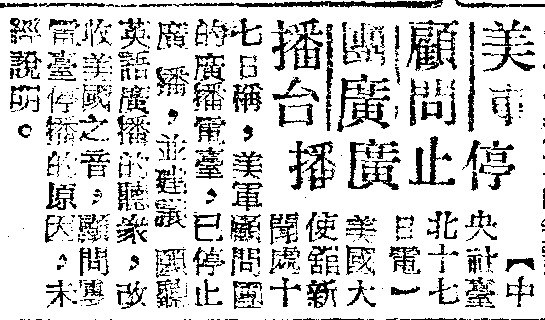 美軍
顧問
團廣
播台
停止廣播
【中
央社臺
北十七
日電】
美國大
使館新
聞處十
七日稱,美軍顧問團
的廣播電臺,已停止
廣播,並建議 聽
英語廣播的聽衆,改
收美國之音,顧問團
電臺停播的原因,未
經說明。